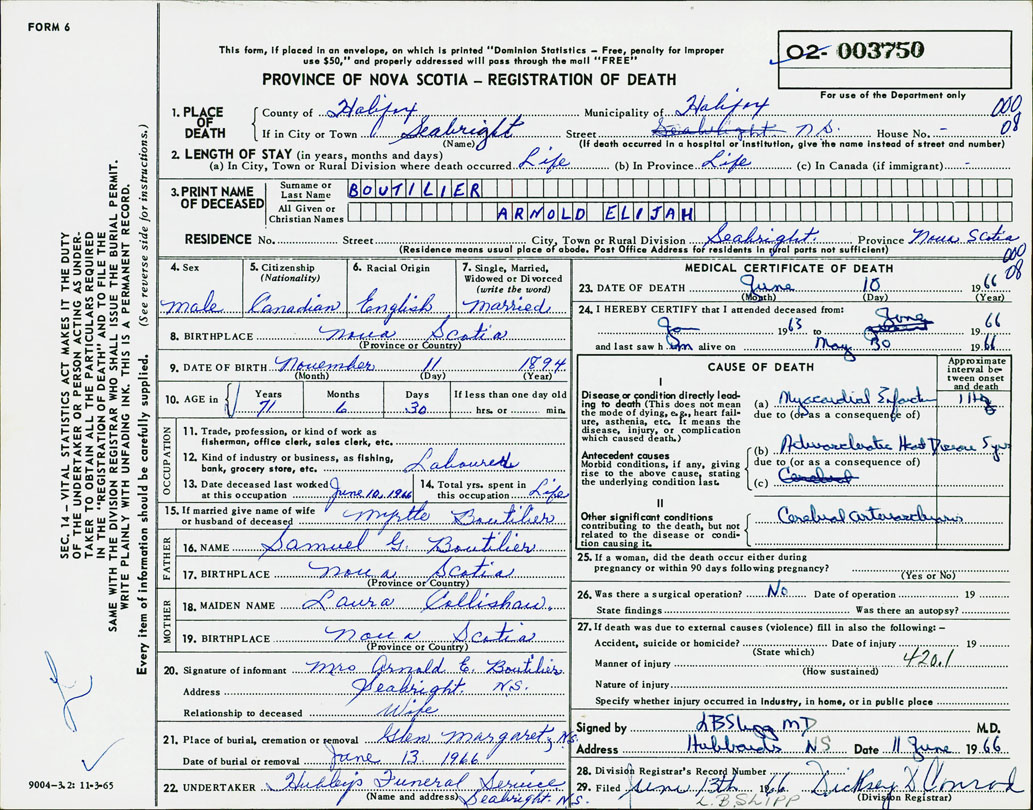 FORM 6
This form, if placed in an envelope, on which is printed "Dominion Statistics – Free, penalty for improper
use $50," and properly addressed will pass through the mail "FREE"
PROVINCE OF NOVA SCOTIA – REGISTRATION OF DEATH
02- 003750
For use of the Department only
000
08
1. PLACE OF DEATH
County of Halifax Municipality of Halifax
If in City or Town Seabright Street Seabright N.S. House No. -
(Name) (If death occurred in a hospital or institution, give the name instead of street and number)
2. LENGTH OF STAY (in years, months and days)
(a) In City, Town or Rural Division where death occurred Life (b) In Province Life (c) In Canada (if immigrant) -
3. PRINT NAME OF DECEASED
Surname or Last Name BOUTILIER
All Given or Christian Names ARNOLD ELIJAH
RESIDENCE No. Street City, Town or Rural Division Seabright. Province Nova Scotia
(Residence means usual place of abode. Post Office Address for residents in rural parts not sufficient)
000
08
4. Sex
male
5. Citizenship (Nationality)
Canadian
6. Racial Origin
English
7. Single, Married, Widowed or Divorced (write the word)
married
8. BIRTHPLACE Nova Scotia
(Province or Country)
9. DATE OF BIRTH November 11 1894
(Month) (Day) (Year)
10. AGE in Years Months Days If less than one day old
71 6 30 hrs. or min.
OCCUPATION
11. Trade, profession, or kind of work as
fisherman, office clerk, sales clerk, etc.
12. Kind of industry or business, as fishing,
bank, grocery store, etc. Labourer
13. Date deceased last worked at this occupation June 10, 1966
14. Total yrs. spent in this occupation Life
15. If married give name of wife
or husband of deceased Myrtle Boutilier
FATHER
16. NAME Samuel G. Boutilier
17. BIRTHPLACE Nova Scotia
(Province or Country)
MOTHER
18. MAIDEN NAME Laura Collishaw.
19. BIRTHPLACE Nova Scotia
(Province or Country)
20. Signature of informant Mrs Arnold E. Boutilier
Address Seabright. N.S.
Relationship to deceased Wife
21. Place of burial, cremation or removal Glen Margaret, N.S.
Date of burial or removal June 13, 1966
22. UNDERTAKER Hubley's Funeral Service
(Name and address) Seabright N.S.
MEDICAL CERTIFICATE OF DEATH
23. DATE OF DEATH June 10 1966
(Month) (Day) (Year)
24. I HEREBY CERTIFY that I attended deceased from:
Jan 1963 to June 1966
and last saw him alive on May 30 1966
CAUSE OF DEATH
Approximate interval between onset and death
I
Disease or condition directly leading to death (This does not mean the mode of dying, e.g., heart failure, asthenia, etc. It means the disease, injury, or complication which caused death.)
(a) Myocardial Infarction
due to (or as a consequence of)
Antecedent causes
Morbid conditions, if any, giving rise to the above cause, stating the underlying condition last.
(b) Arteriosclerotic Heart Disease 5yrs
due to (or as a consequence of)
(c) Cerebral
II
Other significant conditions
contributing to the death, but not related to the disease or condition causing it.
Cerebral arteriosclerosis
25. If a woman, did the death occur either during
pregnancy or within 90 days following pregnancy?
(Yes or No)
26. Was there a surgical operation? No Date of operation 19
State findings Was there an autopsy?
27. If death was due to external causes (violence) fill in also the following: –
Accident, suicide or homicide? Date of injury 19
(State which)
Manner of injury 420.1
(How sustained)
Nature of injury
Specify whether injury occurred in industry, in home, or in public place
Signed by LBSlipp MD M.D.
Address Hubbards NS Date 11 June 1966
28. Division Registrar's Record Number
29. Filed June 13th 1966 D Conrad
L.B SLIPP (Division Registrar)
SEC. 14 – VITAL STATISTICS ACT MAKES IT THE DUTY
OF THE UNDERTAKER OR PERSON ACTING AS UNDER-
TAKER TO OBTAIN ALL THE PARTICULARS REQUIRED
IN THE "REGISTRATION OF DEATH" AND TO FILE THE
SAME WITH THE DIVISION REGISTRAR WHO SHALL ISSUE THE BURIAL PERMIT.
WRITE PLAINLY WITH UNFADING INK. THIS IS A PERMANENT RECORD.
Every item of information should be carefully supplied. (See reverse side for instructions.)
9004-3.2: 11-3-65